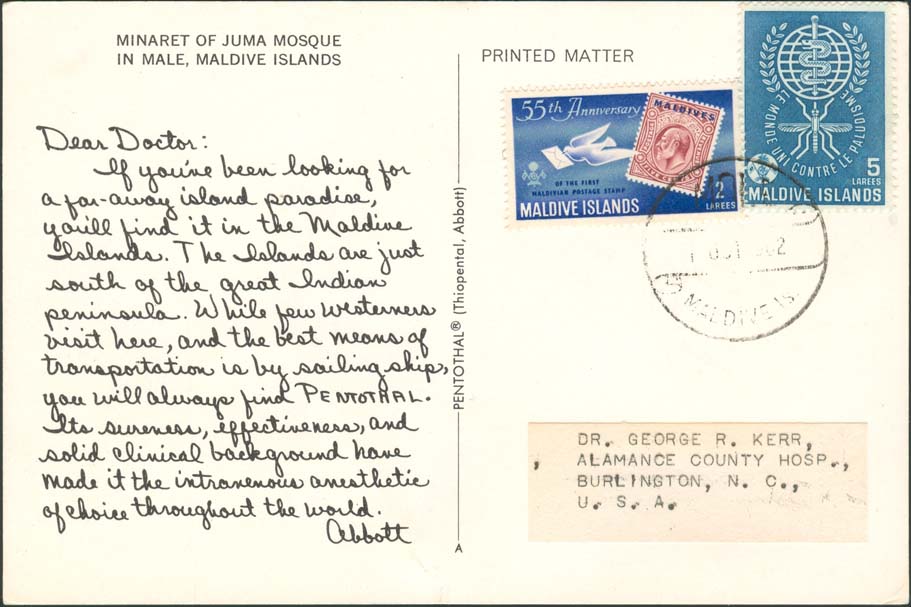 MINARET OF JUMA MOSQUE
IN MALE, MALDIVE ISLANDS
Dear Doctor:
If you've been looking for
a far-away island paradise,
you'll find it in the Maldive
Islands. The Islands are just
south of the great Indian
peninsula. While few westerners
visit here, and the best means of
transportation is by sailing ship,
you will always find PENTOTHAL.
Its sureness, effectiveness, and
solid clinical background have
made it the intravenous anesthetic
of choice throughout the world.
Abbott
PENTOTHAL® (Thiopental, Abbott)
A
PRINTED MATTER
55th Anniversary
MALDIVES
OF THE FIRST
MALDIVIAN POSTAGE STAMP
2
LAREES
MALDIVE ISLANDS
LE MONDE UNI CONTRE LE PALUDISME
5
LAREES
MALDIVE ISLANDS
MALDIVE IS.
DR. GEORGE R. KERR,
ALAMANCE COUNTY HOSP.,
BURLINGTON, N. C.,
U. S. A.